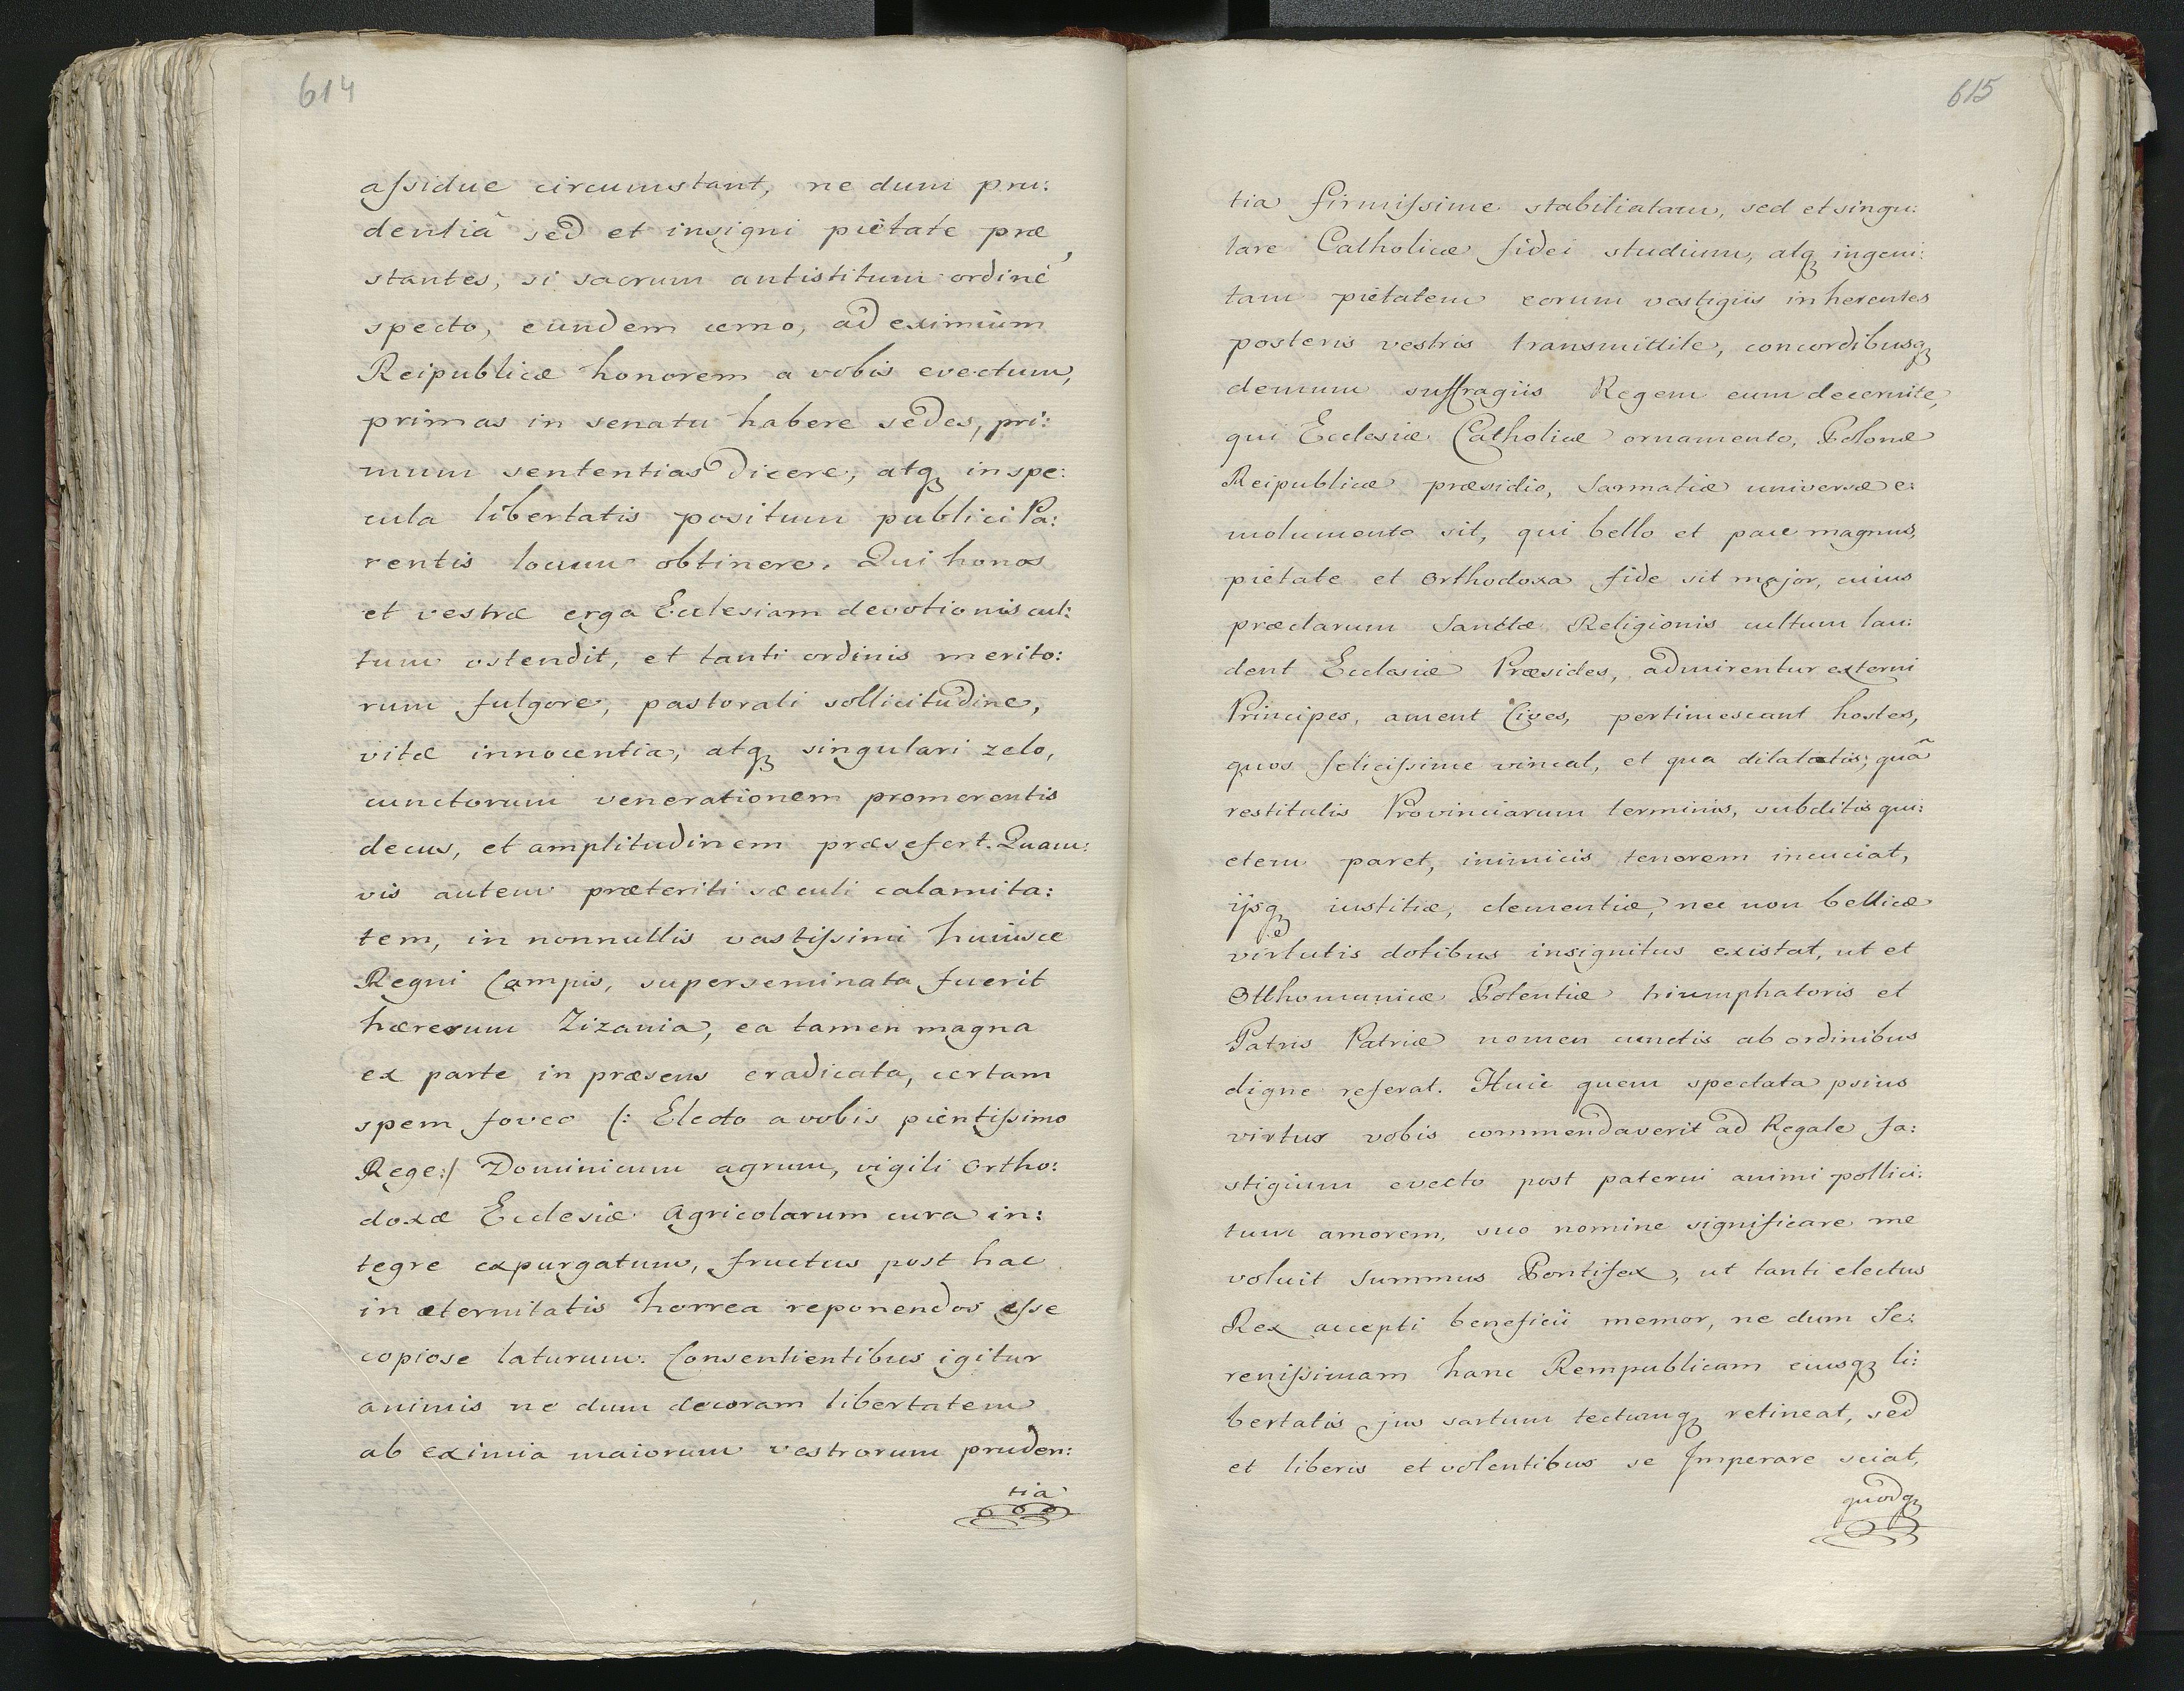 614
assidue circumstant, ne dum pru:
dentiâ sed et insigni pietate præ
stantes, si sacrum antistitum ordinē
specto, eundem cerno, ad eximium
Reipublicæ honorem a vobis evectum,
primas in senatu habere sedes, pri:
mum sententias dicere, atq́ in spe:
cula libertatis positum publici Pa:
rentis locum obtinere. Qui honos
et vestræ erga Ecclesiam devotionis cul:
tum ostendit, et tanti ordinis merito:
rum fulgore, pastorali sollicitudine,
vitæ innocentia, atq́ singulari zelo,
cunctorum venerationem promerentis
decus, et amplitudinem præsefert. Quam:
vis autem præteriti sæculi calamita:
tem, in nonnullis vastissimi huiusce
Regni Campis, superseminata fuerit
hæresum Zizania, ea tamen magna
ex parte in præsens eradicata, certam
spem foveo (: Electo a vobis pientissimo
Rege:/ Dominicum agrum, vigili Ortho:
doxæ Ecclesiæ Agricolarum cura in:
tegre expurgatum, fructus post hac
in æternitatis horrea reponendos esse
copiose laturum. Consentientibus igitur
animis ne dum decoram libertatem
ab eximia maiorum vestrorum pruden:
tia
615
tia firmissime stabilitatam, sed et singu:
lare Catholicæ fidei studium, atq́ ingeni:
tam pietatem eorum vestigiis inherentes
posteris vestris transmittite, concordibusq́
demum suffragiis Regem eum decernite,
qui Ecclesiæ Catholicæ ornamento, Polonæ
Reipublicæ præsidio, Sarmatiæ universæ e:
molumento sit, qui bello et pace magnus,
pietate et Orthodoxa fide sit major, cuius
præclarum Sanctæ Religionis cultum lau:
dent Ecclesiæ Præsides, admirentur externi
Principes, ament Cives, pertimescant hostes,
quos felicissime vincat, et qua dilatatis; quâ
restitutis Provinciarum terminis, subditis qui:
etem paret, inimicis terrorem incuciat,
ijsq́ iustitiæ, clementiæ, nec non bellicæ
virtutis dotibus insignitus existat, ut et
Otthomanicæ Potentiæ triumphatoris et
Patris Patriæ nomen cunctis ab ordinibus
digne referat. Huic quem spectata psius
virtus vobis commendaverit ad Regale fa:
stigium evecto post paterni animi pollici:
tum amorem, suo nomine significare me
voluit Summus Pontifex, ut tanti electus
Rex accepti beneficii memor, ne dum Se:
renissimam hanc Rempublicam eiusq́ li:
bertatis jus sartum tectumq́ retineat, sed
et liberis et volentibus se Imperare sciat,
quodq́